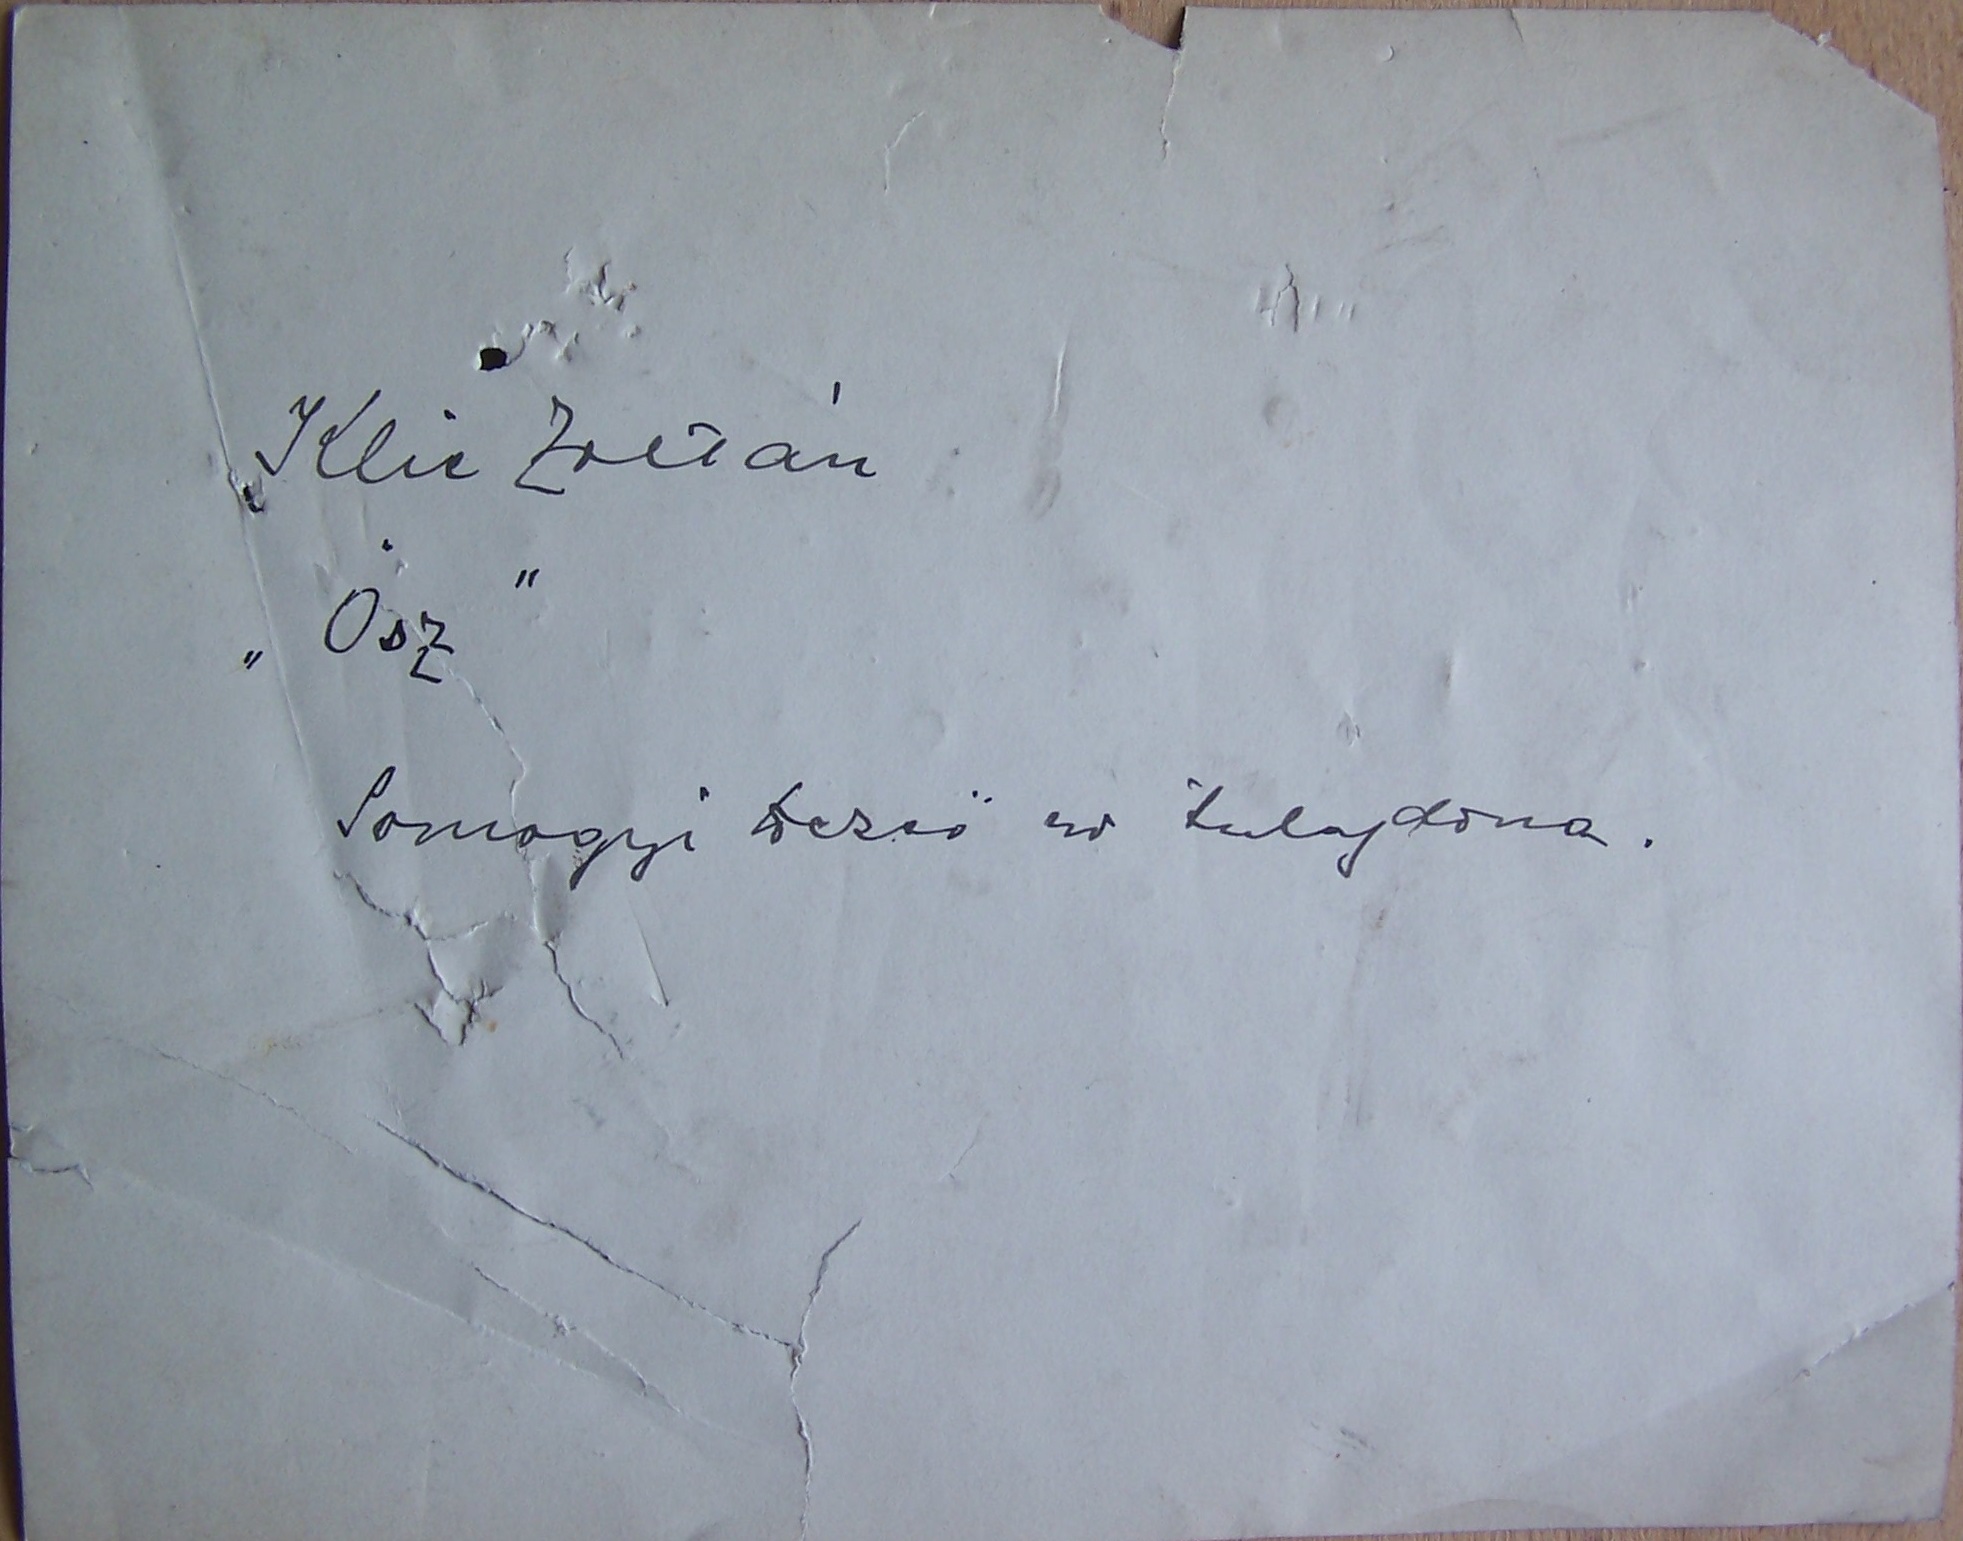 Klie Zoltán
„ Ősz "
Somogyi Dezső tulajdona.